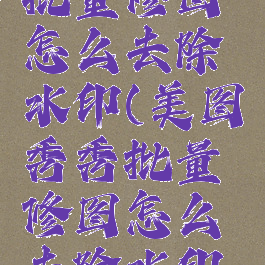 批量修图
怎么去除
水印(美图
秀秀批量
修图怎么
去除水印